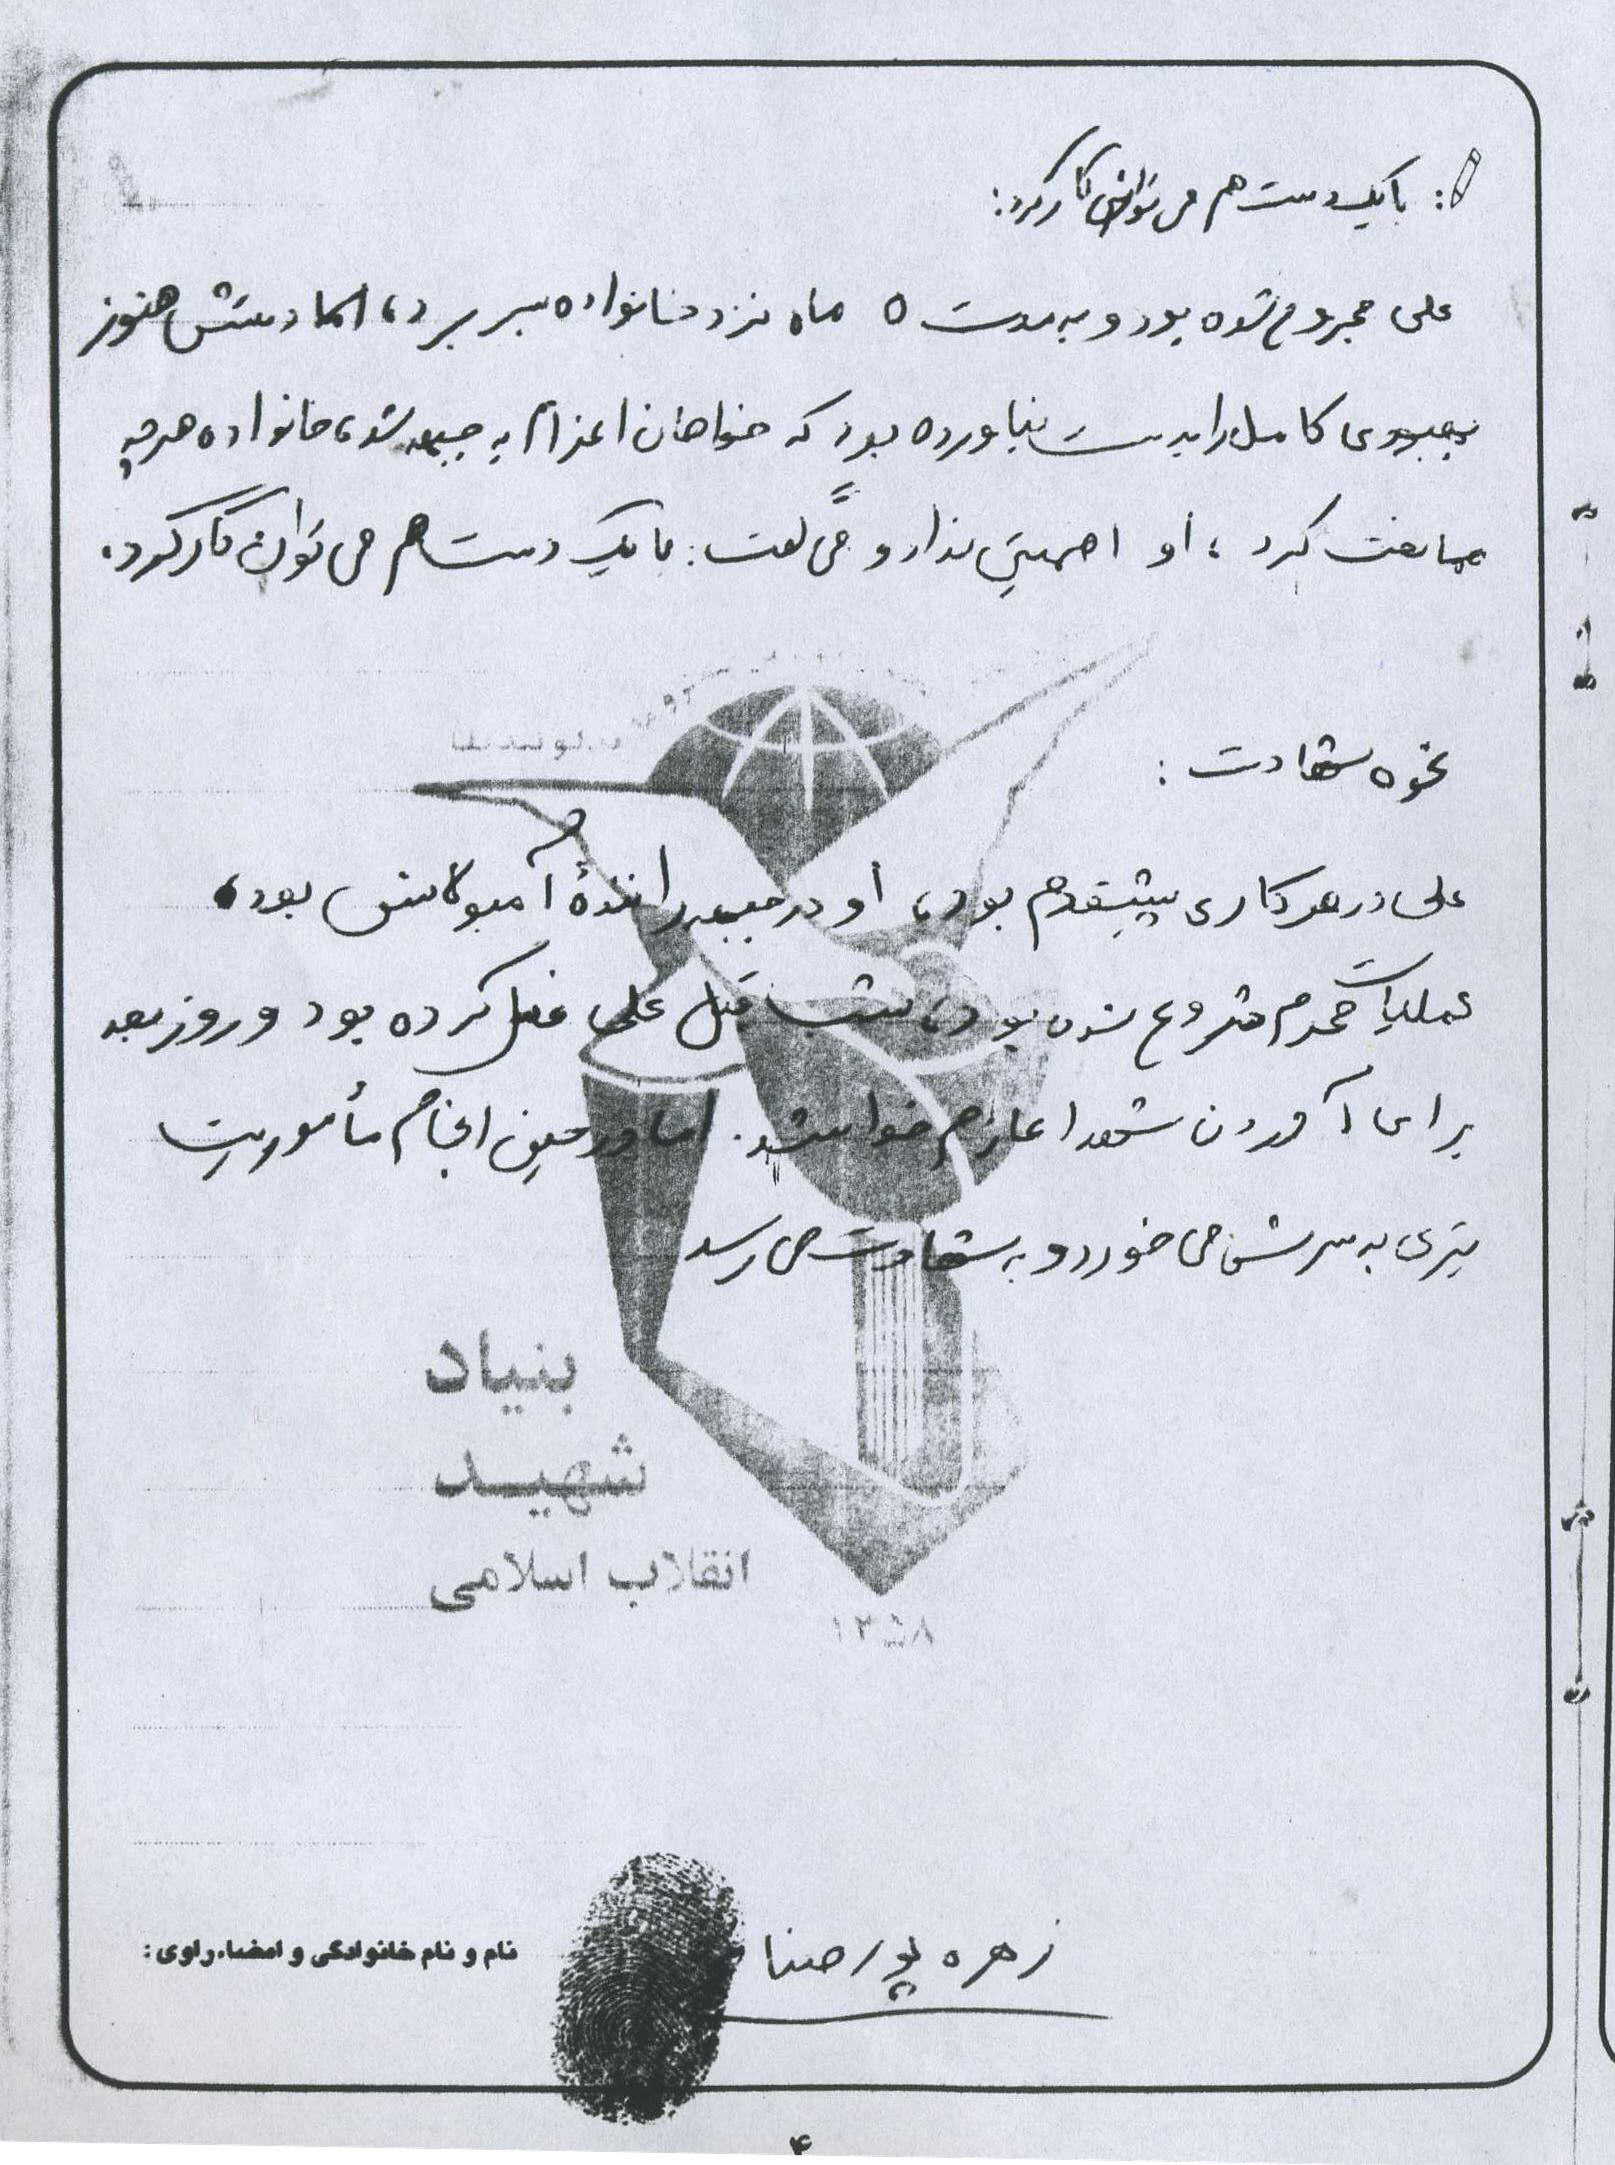 : با یک دست هم می توان کار کرد:
علی مجروح شده بود و به مدت ۵ ماه نزد خانواده بسر برد، اما دستش هنوز
بهبودی کامل را بدست نیاورده بود که خواهان اعزام به جبهه شد، خانواده هرچه
ممانعت کرد، او اهمیتی نداد و می گفت: با یک دست هم می توان کار کرد.
نحوه شهادت:
علی در هر کاری پیشقدم بود، او در جبهه رانندهٔ آمبولانس بود،
عملیات محرم شروع شده بود، شب قبل علی غسل کرده بود و روز بعد
برای آوردن شهدا عازم خواست شد. اما در حین انجام مأموریت
تیری به سرش می خورد و به شهادت می رسد
بنیاد
شهید
انقلاب اسلامی
۱۳۵۸
نام و نام خانوادگی و امضاء راوی:
زهره پورصنا
۴